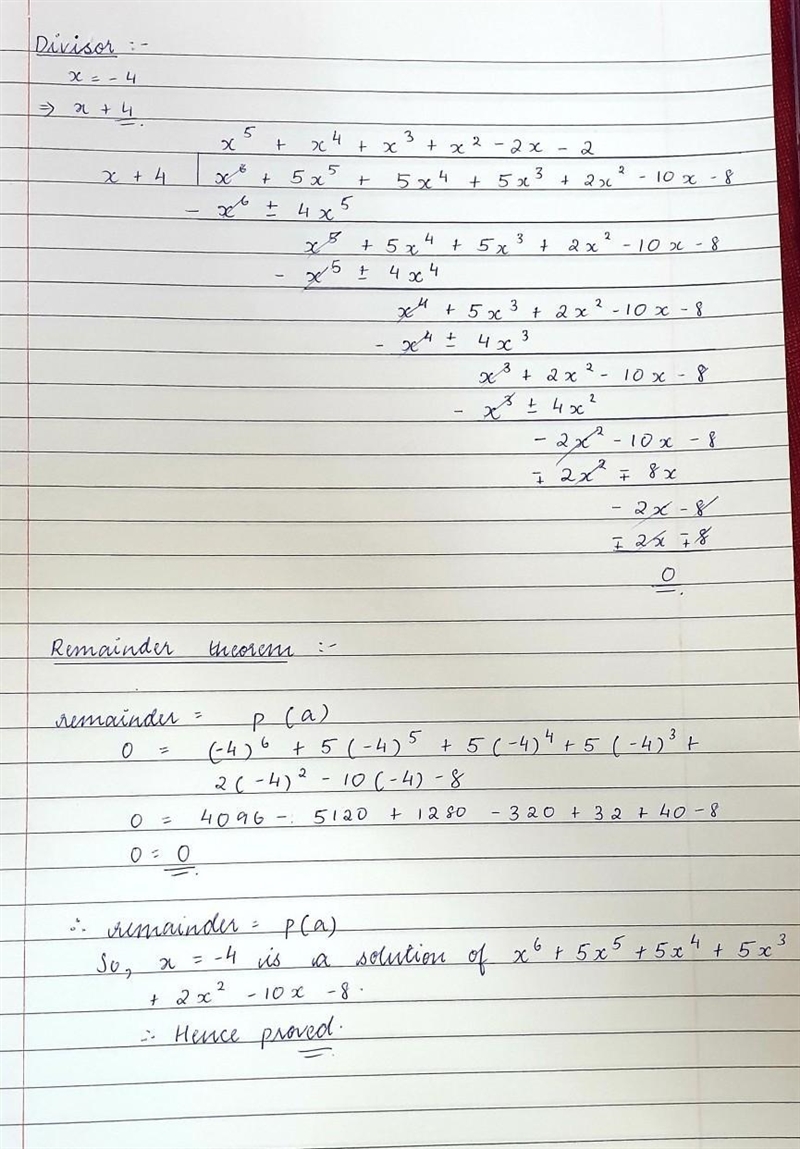 Divisor :-
x = - 4
⇒ x + 4
x⁵ + x⁴ + x³ + x² - 2x - 2
x + 4 | x⁶ + 5x⁵ + 5x⁴ + 5x³ + 2x² - 10x - 8
- x⁶ ± 4x⁵
x⁵ + 5x⁴ + 5x³ + 2x² - 10x - 8
- x⁵ ± 4x⁴
x⁴ + 5x³ + 2x² - 10x - 8
- x⁴ ± 4x³
x³ + 2x² - 10x - 8
- x³ ± 4x²
- 2x² - 10x - 8
∓ 2x² ∓ 8x
- 2x - 8
∓ 2x ∓ 8
0
Remainder theorem :-
remainder = p(a)
0 = (-4)⁶ + 5(-4)⁵ + 5(-4)⁴ + 5(-4)³ +
2(-4)² - 10(-4) - 8
0 = 4096 - 5120 + 1280 - 320 + 32 + 40 - 8
0 = 0
∴ remainder = p(a)
So, x = -4 is a solution of x⁶ + 5x⁵ + 5x⁴ + 5x³
+ 2x² - 10x - 8.
∴ Hence proved.